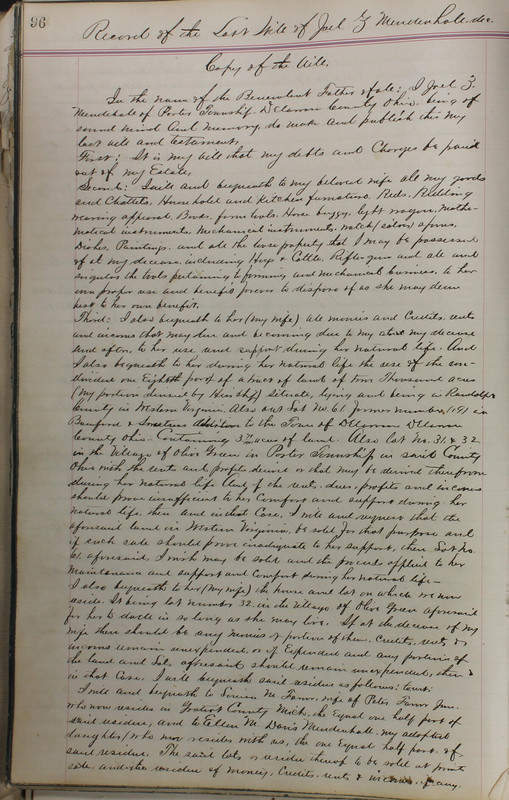 96
Record of the Last Will of Joel Z Mendenhall dec.
Copy of the Will.
In the name of the Benevolent Father of all: I Joel Z.
Mendenhall of Porter Township Delaware County Ohio. being of
sound mind and memory, do make and publish this my
last will and testament.
First: It is my will that my debts and Charges be paid
out of my Estate.
Second: I will and bequeath to my beloved wife all my goods
and Chattels, Household and kitchen furniture, Beds, Bedding
wearing apparel, Books, farm tools, Horse buggy, light wagon, mathe-
matical instruments, mechanical instruments, watch, spoons,
Dishes, Paintings, and all the loose property that I may be possessed
of at my decease, including Hogs & Cattle, Rifle gun and all and
singular the tools pertaining to farming and mechanical business, to her
own proper use and benefit forever to dispose of as she may deem
best to her own benefit.
Third: I also bequeath to her (my wife) all monies and Credits, rents
and incomes that may due and becoming due to my at my decease
and after, to her use and support during her natural life. And
I also bequeath to her during her natural life the use of the un-
divided one Eighth part of a tract of land of two Thousand acres
(my portion by Heirship) Situate, lying and being in Randolph
County in Western Virginia. Also out Lot No. 61 former number 191 in
addition to the Town of Delaware Delaware
County Ohio Containing acres of land. Also Lot No. 31 & 32
in the Village of Olive Green in Porter Township in said County
Ohio with the rents and profits derived or that may be derived therefrom
during her natural life And if the rents, dues, profits and incomes
should prove insufficient to her Comfort and support during her
natural life, then and in that Case, I will and request that the
aforesaid land in Western Virginia, be sold for that purpose and
if such sale should prove inadequate to her support, then Lot No.
61 aforesaid, I wish may be sold and the proceeds applied to her
Maintenance and support and Comfort during her natural life—
I also bequeath to her (my wife) the house and lot on which we now
reside. It being lot number 32 in the Village of Olive Green aforesaid
for her to dwell in so long as she may live. If at the decease of my
wife there should be any monies or portion of them, Credits, rents &
incomes remain unexpended, or if Expended and any portion of
the land and lots aforesaid should remain unexpended, then &
in that Case, I will bequeath said residue as follows: towit:
I will and bequeath to M. Farrer, wife of Peter Farrer Jun.
who now resides in Gratiot County Mich. the Equal one half part of
said residue, and to Ellen M. Davis Mendenhall, my adopted
daughter, who now resides with us, the one Equal half part of
said residue. The said lots or residue thereof to be sold at private
sale and the residue of money, Credits, rents & incomes, if any.